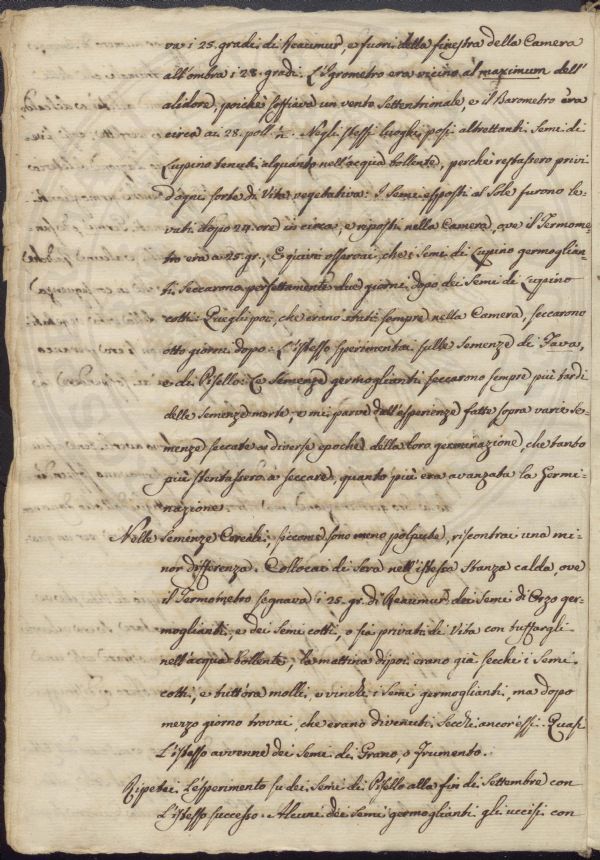 va i 25. gradi di Reaumur, e fuori della finestra della Camera
all'ombra i 28. gradi. L'Igrometro era vicino al maximum dell'
alidore, poichè soffiava un vento Settentrionale, e il Barometro era
circa ai 28. poll. Negli stessi luoghi posi altrettanti Semi di
Lupino tenuti alquanto nell'acqua bollente, perchè restassero privi
d'ogni sorte di Vita vegetativa. I Semi esposti al Sole furono le-
vati dopo 24. ore in circa, e riposti nella Camera, ove il Termome-
tro era a 25. gr., E quivi osservai, che i Semi di Lupino germoglian
ti Seccarono perfettamente due giorni dopo dei Semi di Lupino
cotti. Quegli poi, che erano stati sempre nella Camera, seccarono
otto giorni dopo. L'istesso sperimentai sulle Semenze di Fava,
e di Pisello. Le Semenze germoglianti seccarono sempre più tardi
delle Semenze morte, e mi parve dall'esperienze fatte sopra varie Se-
menze seccate a diverse epoche della loro germinazione, che tanto
più stentassero a seccare, quanto più era avanzata la Germi-
nazione.
Nelle Semenze Cereali, siccome sono meno polpute, riscontrai una mi-
nor differenza. Collocai di Sera nell'istessa Stanza calda, ove
il Termometro segnava i 25. gr. di Reaumur dei Semi di Orzo ger-
moglianti, e dei Semi cotti, o sia privati di Vita con tuffargli
nell'acqua bollente, la mattina dipoi erano già secchi i Semi
cotti, e tutt'ora molli, e vinchi i Semi germoglianti, ma dopo
mezzo giorno trovai, che erano divenuti secchi ancor essi. Quasi
L'istesso avvenne dei Semi di Grano, o Frumento.
Ripetei L'esperimento su dei Semi di Pisello alla fin di Settembre con
L'istesso successo. Alcuni dei Semi germoglianti gli uccisi con